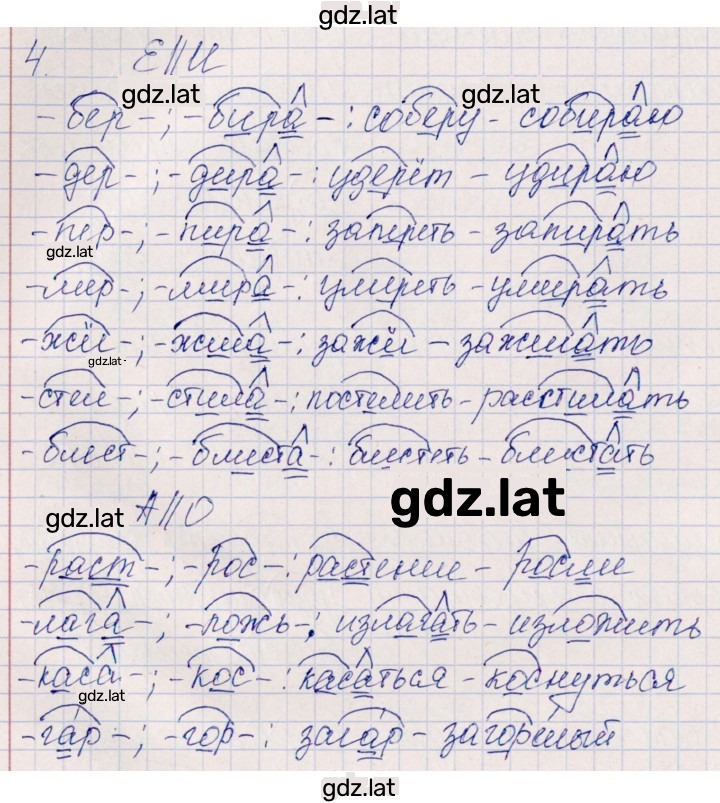 gdz.lat
4. Е//И
gdz.lat
-бер-; -бира-: соберу - собираю
-дер-; -дира-: удерёт - удираю
-пер-; -пира-: запереть - запирать
gdz.lat
-мир-; -мира-: умереть - умирать
-жй-; -жига-: зажй - зажигать
gdz.lat
-стел-; -стила-: постелить - расстилать
-блест-; -блиста-: блестеть - блистать
gdz.lat
gdz.lat А//О
-раст-; -рос-: растение - росли
-лага-; -ложь-: излагать - изложить
-каса-; -кос-: касаться - коснуться
gdz.lat
-гар-; -гор-: загар - загорелый
gdz.lat